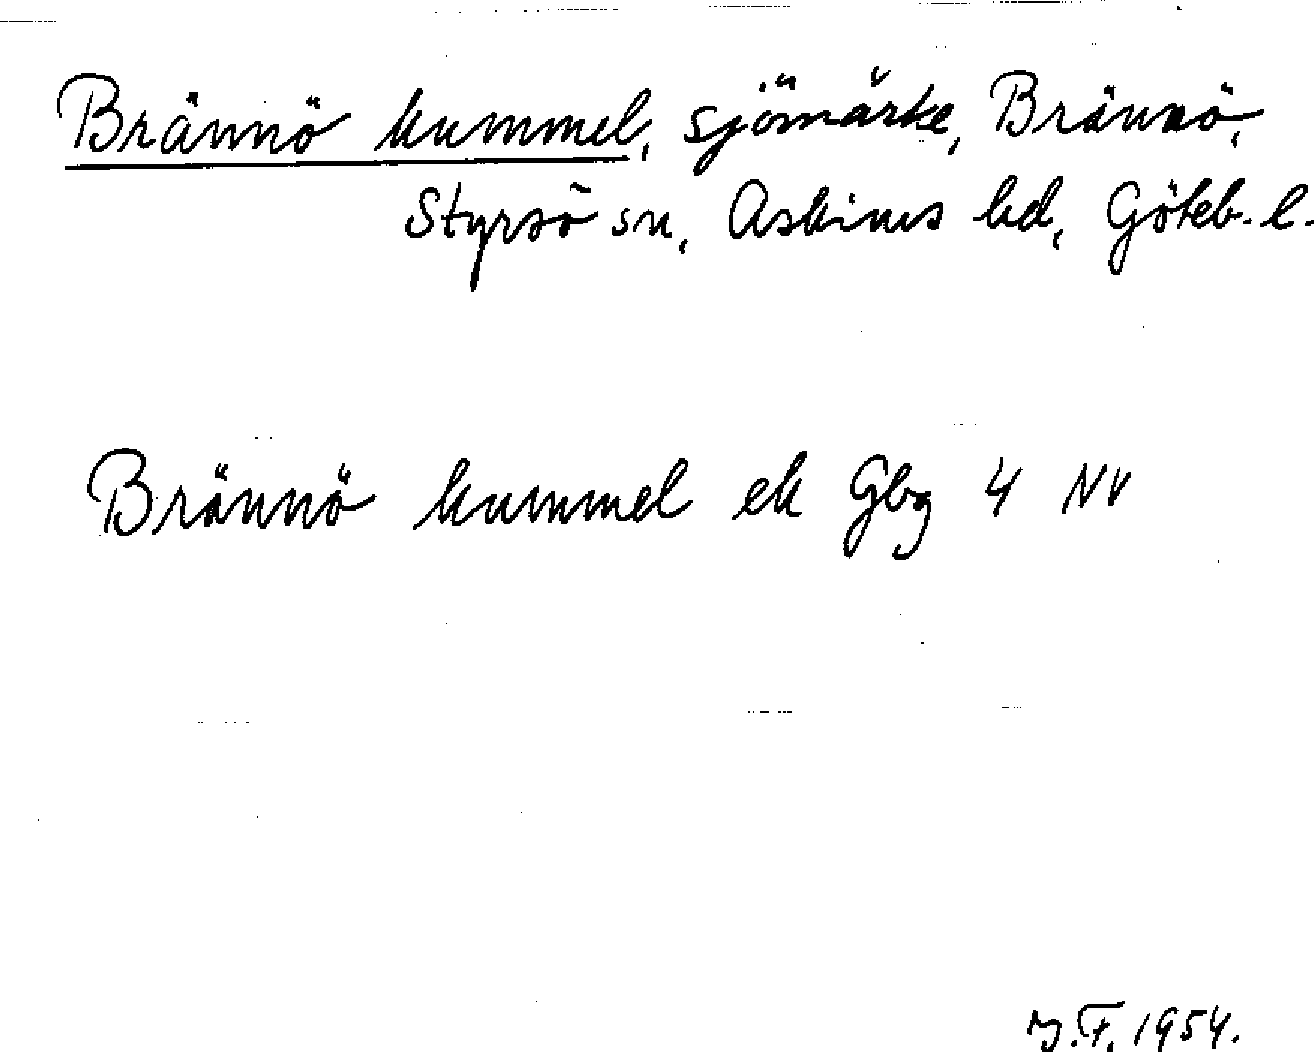 Brännö kummel, sjömärke, Brännö,
Styrsö sn, Askims hd, Göteb. l.
Brännö kummel ek Gbg 4 NV
1954.